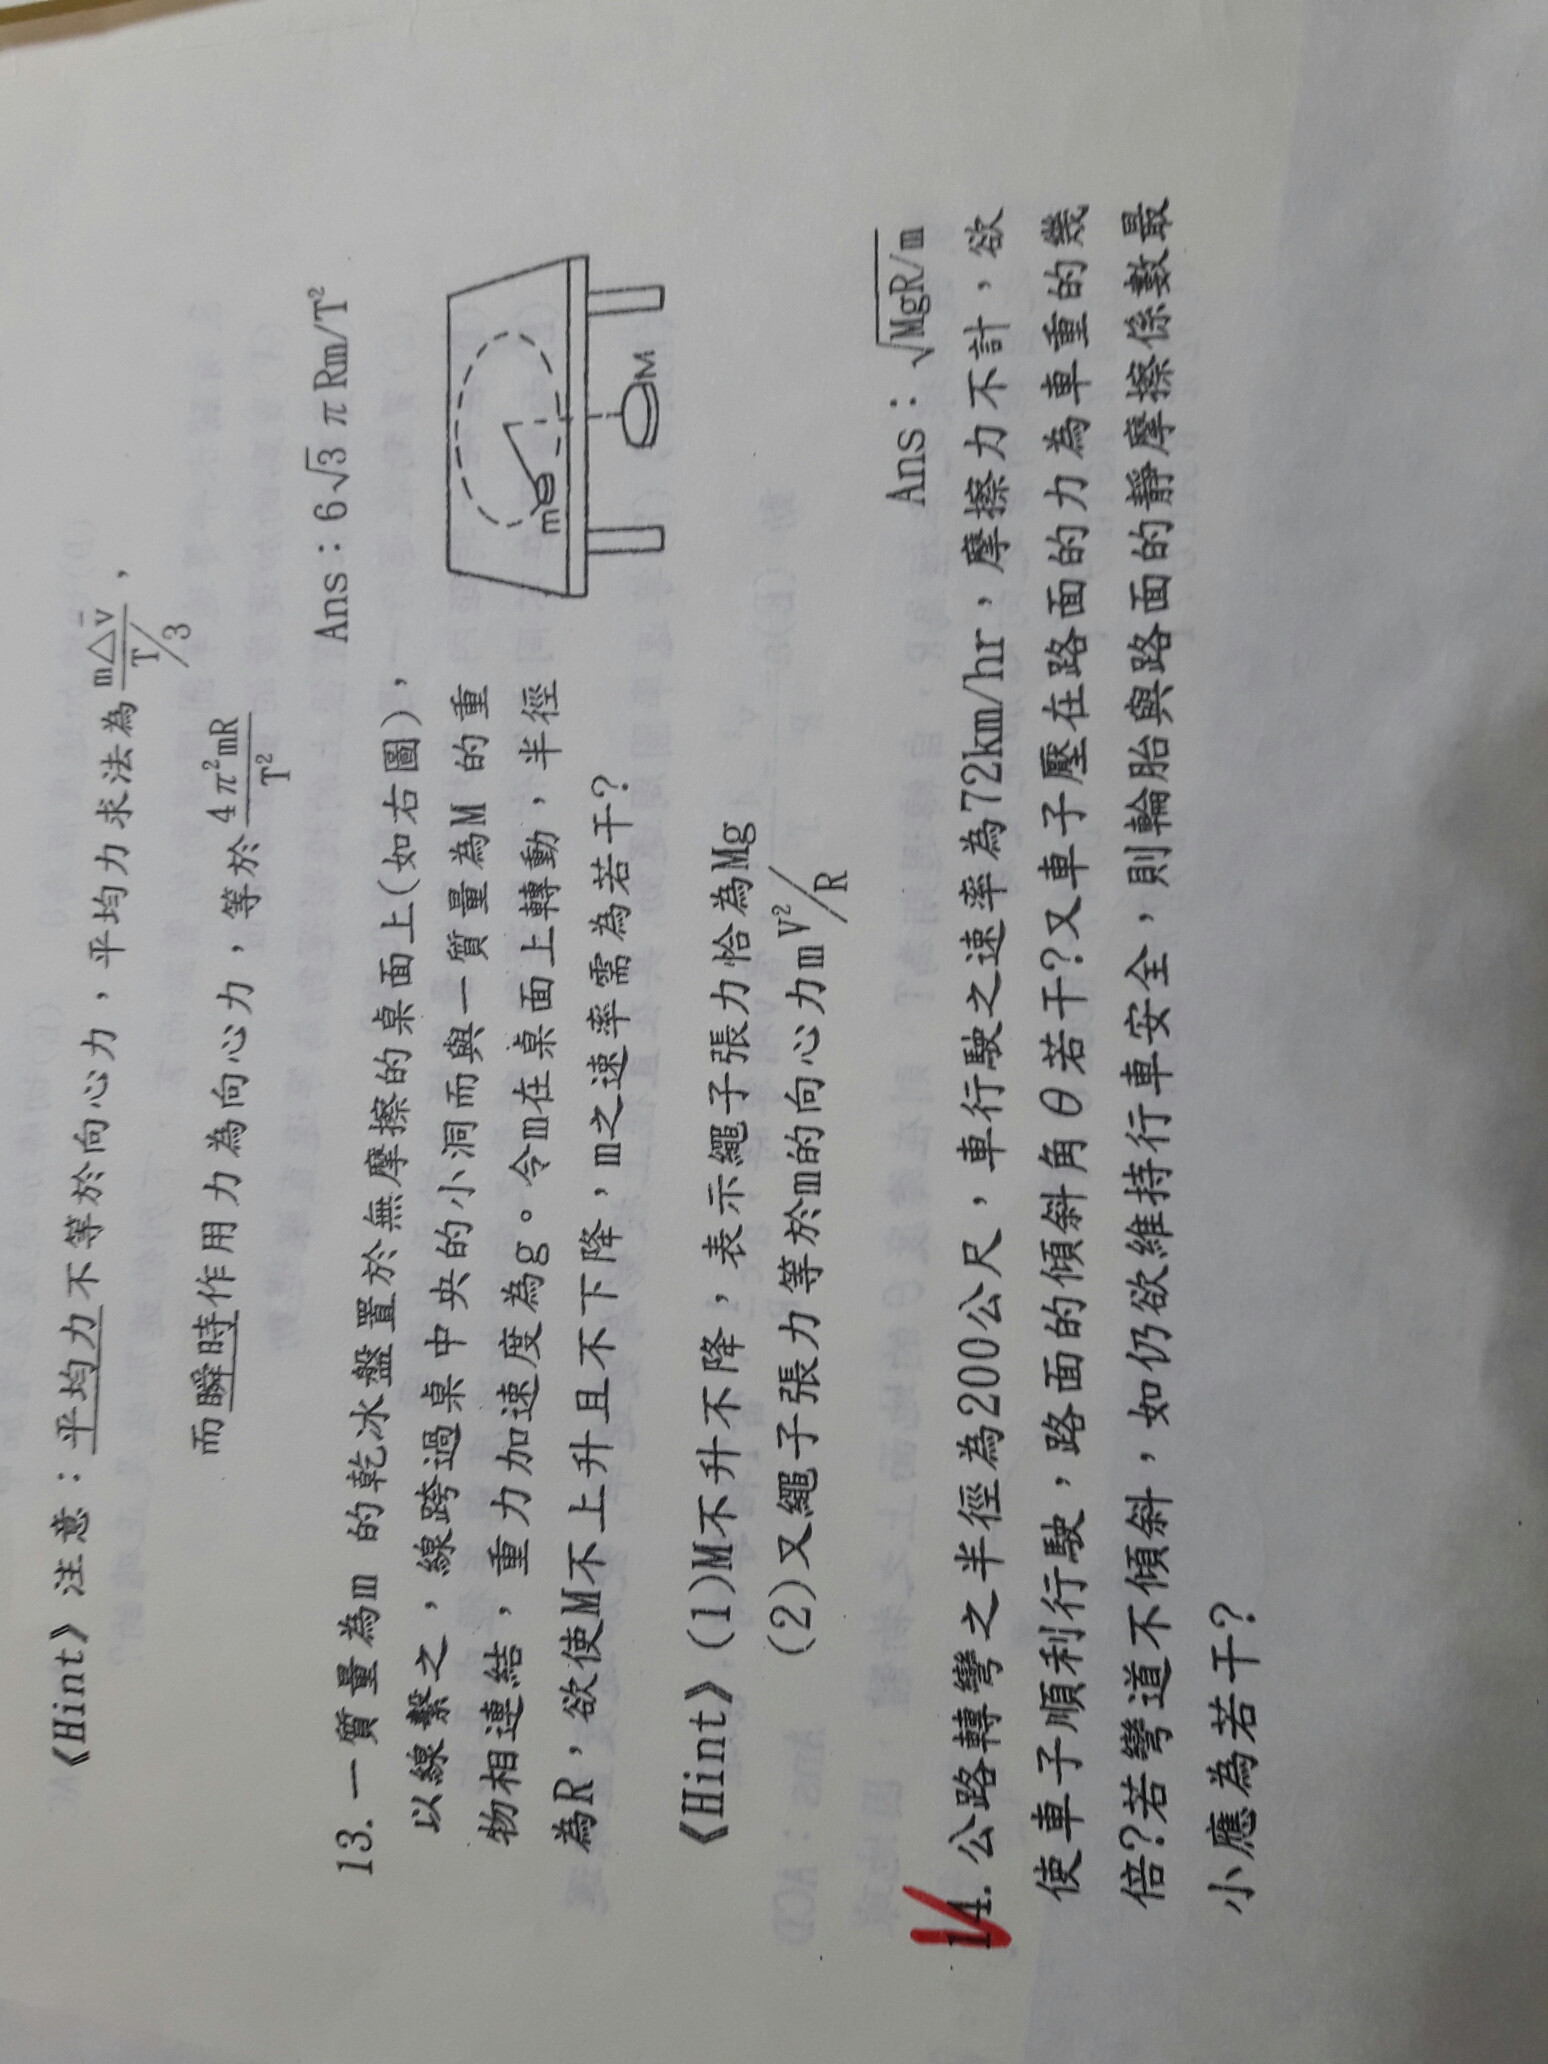 《Hint》注意：平均力不等於向心力，平均力求法為 m△v̄/T/3，
而瞬時作用力為向心力，等於 4π²mR/T²
Ans：6√3 π Rm/T²
13. 一質量為m 的乾冰盤置於無摩擦的桌面上(如右圖)，
以線繫之，線跨過桌中央的小洞而與一質量為M 的重
物相連結，重力加速度為g。令m在桌面上轉動，半徑
為R，欲使M不上升且不下降，m之速率需為若干？
m
M
《Hint》(1)M不升不降，表示繩子張力恰為Mg
(2)又繩子張力等於m的向心力mV²/R
Ans：√MgR/m
14. 公路轉彎之半徑為200公尺，車行駛之速率為72km/hr，摩擦力不計，欲
使車子順利行駛，路面的傾斜角θ若干？又車子壓在路面的力為車重的幾
倍？若彎道不傾斜，如仍欲維持行車安全，則輪胎與路面的靜摩擦係數最
小應為若干？